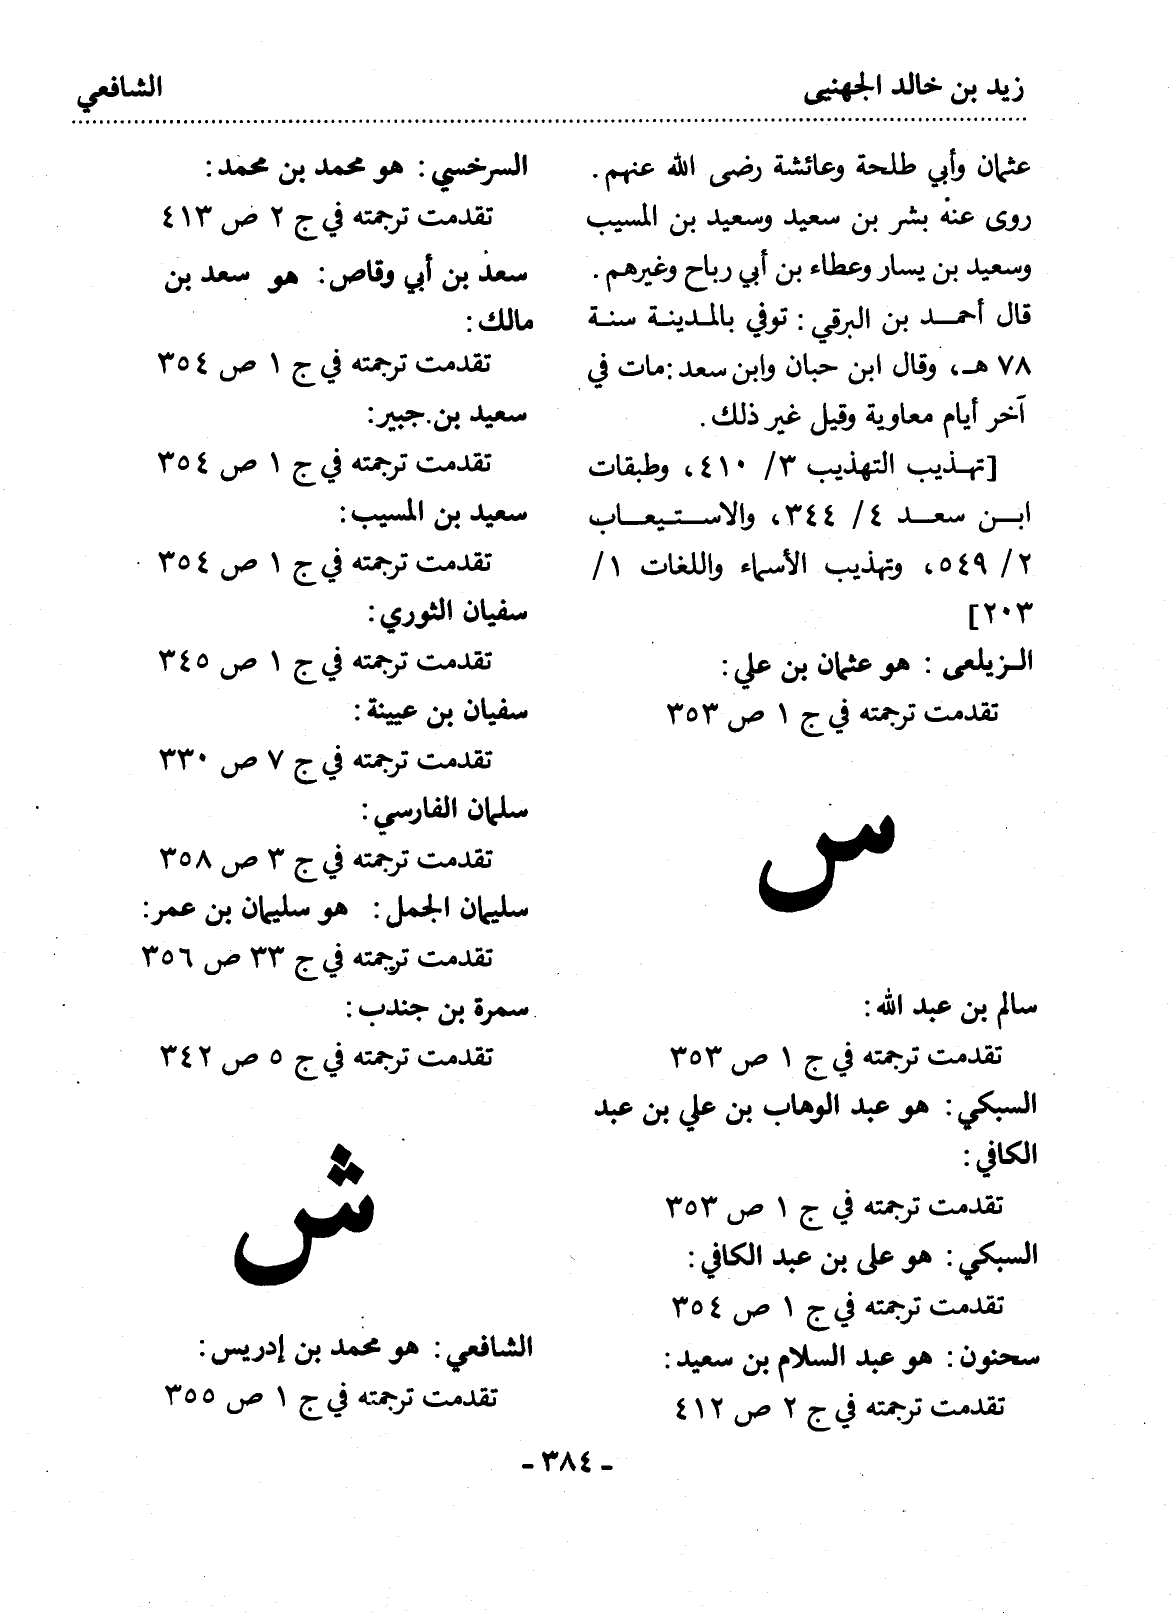 زيد بن خالد الجهنيى
الشافعي
عثمان وأبي طلحة وعائشة رضى الله عنهم.
روى عنه بشر بن سعيد وسعيد بن المسيب
وسعيد بن يسار وعطاء بن أبي رباح وغيرهم.
قال أحمد بن البرقي: توفي بالمدينة سنة
٧٨ هـ، وقال ابن حبان وابن سعد: مات في
آخر أيام معاوية وقيل غير ذلك.
[تهذيب التهذيب ٣/ ٤١٠، وطبقات
ابن سعد ٤/ ٣٤٤، والاستيعاب
٢/ ٥٤٩، وتهذيب الأسماء واللغات ١/
٢٠٣]
الزيلعى: هو عثمان بن علي:
تقدمت ترجمته في ج ١ ص ٣٥٣
س
سالم بن عبد الله:
تقدمت ترجمته في ج ١ ص ٣٥٣
السبكي: هو عبد الوهاب بن علي بن عبد
الكافي:
تقدمت ترجمته في ج ١ ص ٣٥٣
السبكي: هو على بن عبد الكافي:
تقدمت ترجمته في ج ١ ص ٣٥٤
سحنون: هو عبد السلام بن سعيد:
تقدمت ترجمته في ج ٢ ص ٤١٢
السرخسي: هو محمد بن محمد:
تقدمت ترجمته في ج ٢ ص ٤١٣
سعد بن أبي وقاص: هو سعد بن
مالك:
تقدمت ترجمته في ج ١ ص ٣٥٤
سعيد بن جبير:
تقدمت ترجمته في ج ١ ص ٣٥٤
سعيد بن المسيب:
تقدمت ترجمته في ج ١ ص ٣٥٤
سفيان الثوري:
تقدمت ترجمته في ج ١ ص ٣٤٥
سفيان بن عيينة:
تقدمت ترجمته في ج ٧ ص ٣٣٠
سلمان الفارسي:
تقدمت ترجمته في ج ٣ ص ٣٥٨
سليمان الجمل: هو سليمان بن عمر:
تقدمت ترجمته في ج ٣٣ ص ٣٥٦
سمرة بن جندب:
تقدمت ترجمته في ج ٥ ص ٣٤٢
ش
الشافعي: هو محمد بن إدريس:
تقدمت ترجمته في ج ١ ص ٣٥٥
- ٣٨٤ -